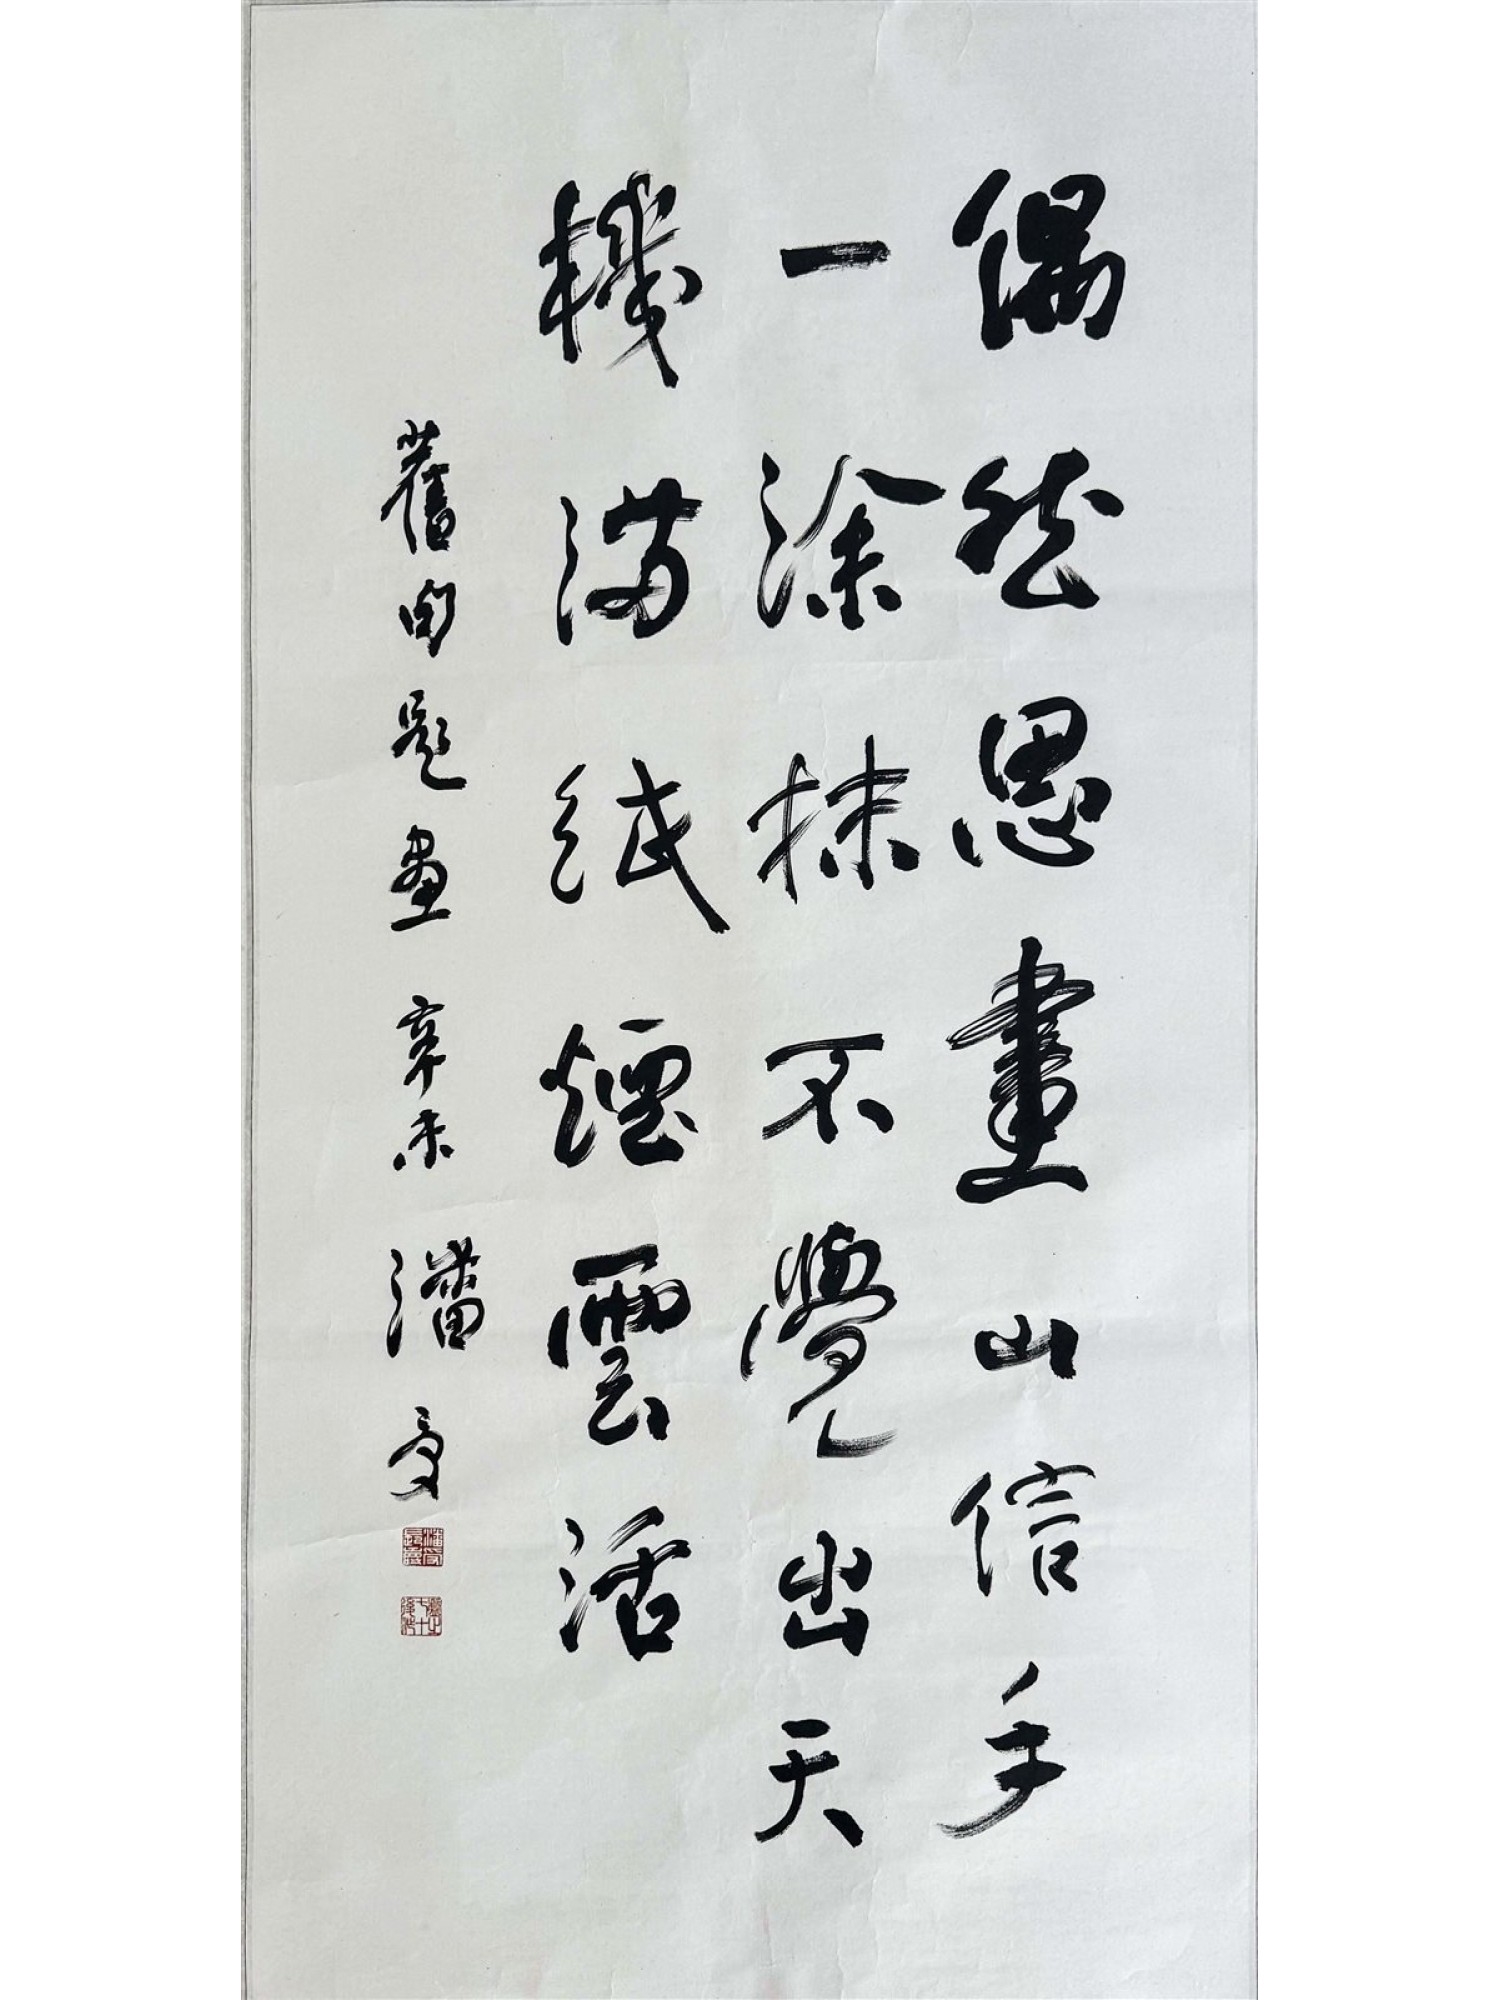 偶然思畫山信手
一涂抹不覺出天
機满紙煙雲活
舊句題畫 辛未 潘受